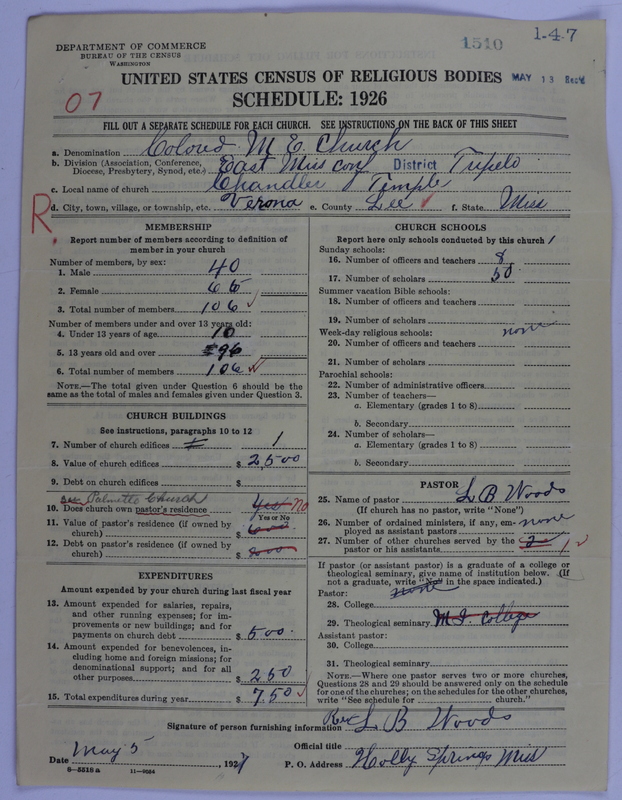 DEPARTMENT OF COMMERCE
BUREAU OF THE CENSUS
WASHINGTON
1510
1-4-7
UNITED STATES CENSUS OF RELIGIOUS BODIES
MAY 13 Rec'd
07
SCHEDULE: 1926
FILL OUT A SEPARATE SCHEDULE FOR EACH CHURCH. SEE INSTRUCTIONS ON THE BACK OF THIS SHEET
a. Denomination Colored M E Church
b. Division (Association, Conference, Diocese, Presbytery, Synod, etc.) East Miss Conf District Tupelo
c. Local name of church Chandler Temple
d. City, town, village, or township, etc. Verona e. County Lee f. State Miss
R.
MEMBERSHIP
Report number of members according to definition of
member in your church
Number of members, by sex:
1. Male 40
2. Female 66
3. Total number of members 106
Number of members under and over 13 years old:
4. Under 13 years of age 10
5. 13 years old and over 96
6. Total number of members 106
NOTE.—The total given under Question 6 should be the
same as the total of males and females given under Question 3.
CHURCH BUILDINGS
See instructions, paragraphs 10 to 12
7. Number of church edifices 1
8. Value of church edifices $ 2,500
9. Debt on church edifices $
See Palmetto Church
10. Does church own pastor's residence Yes No
Yes or No
11. Value of pastor's residence (if owned by
church) $
12. Debt on pastor's residence (if owned by
church) $
EXPENDITURES
Amount expended by your church during last fiscal year
13. Amount expended for salaries, repairs,
and other running expenses; for im-
provements or new buildings; and for
payments on church debt $ 500
14. Amount expended for benevolences, in-
cluding home and foreign missions; for
denominational support; and for all
other purposes $ 250
15. Total expenditures during year $ 750
CHURCH SCHOOLS
Report here only schools conducted by this church
Sunday schools:
16. Number of officers and teachers 8
17. Number of scholars 50
Summer vacation Bible schools:
18. Number of officers and teachers
19. Number of scholars
Week-day religious schools: none
20. Number of officers and teachers
21. Number of scholars
Parochial schools:
22. Number of administrative officers
23. Number of teachers—
a. Elementary (grades 1 to 8)
b. Secondary
24. Number of scholars—
a. Elementary (grades 1 to 8)
b. Secondary
PASTOR
25. Name of pastor L B Woods
(If church has no pastor, write "None")
26. Number of ordained ministers, if any, em-
ployed as assistant pastors none
27. Number of other churches served by the
pastor or his assistants
If pastor (or assistant pastor) is a graduate of a college or
theological seminary, give name of institution below. (If
not a graduate, write "No" in the space indicated.)
Pastor: none
28. College
29. Theological seminary M. I. College
Assistant pastor:
30. College
31. Theological seminary
NOTE.—Where one pastor serves two or more churches,
Questions 28 and 29 should be answered only on the schedule
for one of the churches; on the schedules for the other churches,
write "See schedule for church."
Signature of person furnishing information Rev L B Woods
Official title
Date May 5, 1927 P. O. Address Holly Springs Miss
8—5518 a 11—9664